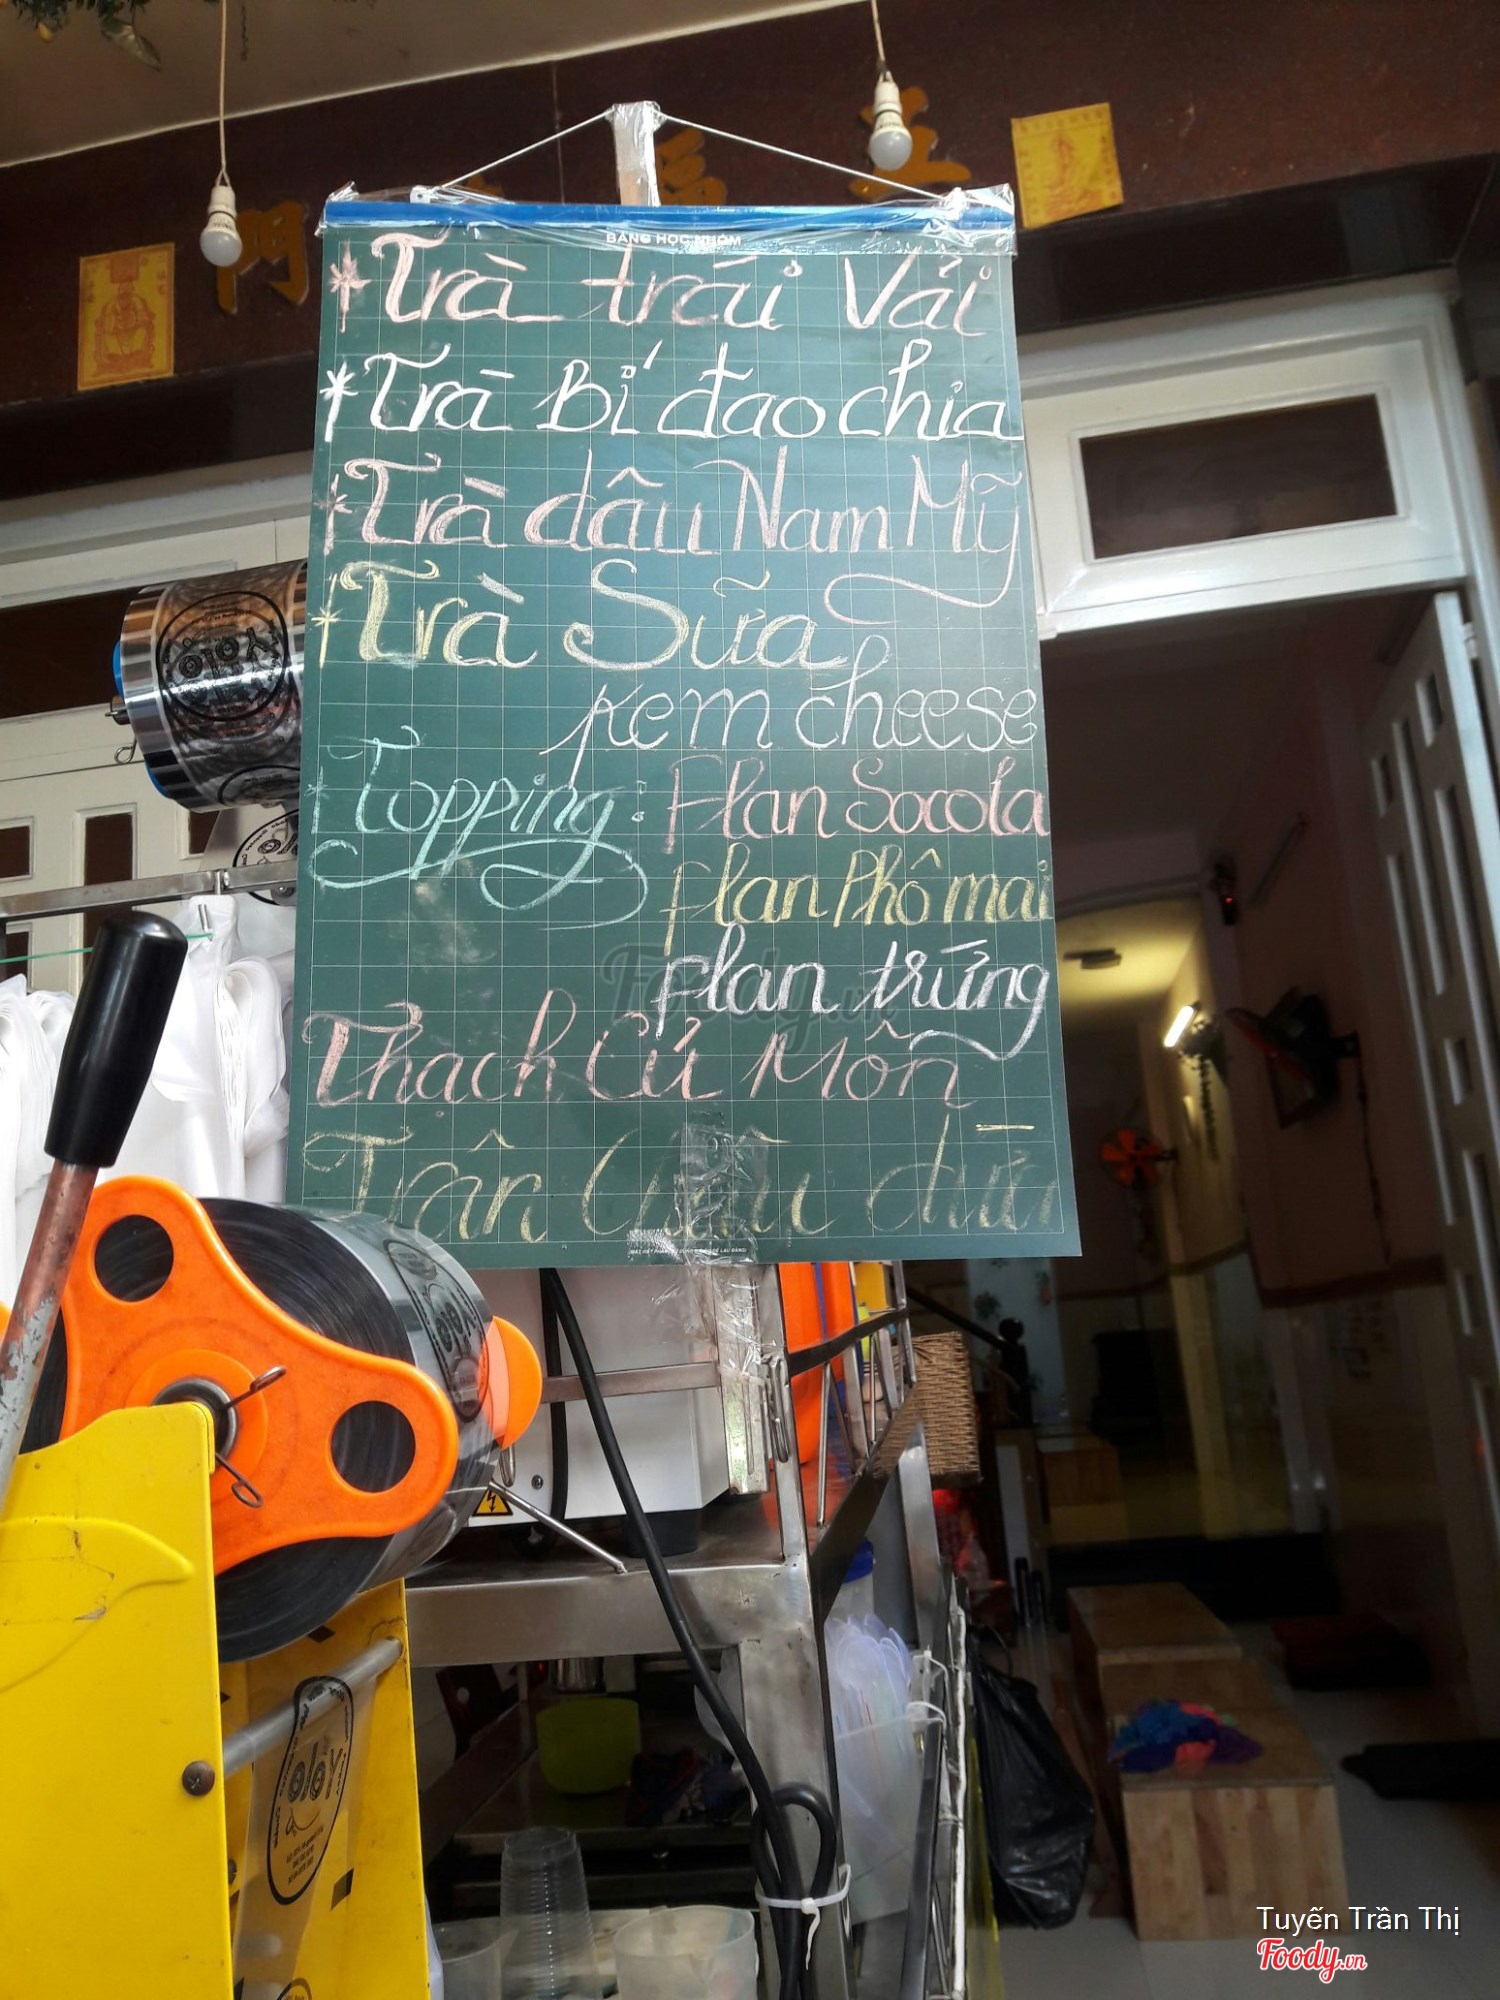 BẢNG HỌC NHÓM
* Trà trái Vải
* Trà Bí đao chia
* Trà dâu Nam Mỹ
* Trà Sữa
kem cheese
* Topping: flan Socola
flan Phô mai
flan trứng
Thạch Củ Mỡn
Trân Châu dừa
門
Yolo
Yolo
Yolo
Foody.vn
Tuyến Trần Thị
Foody.vn